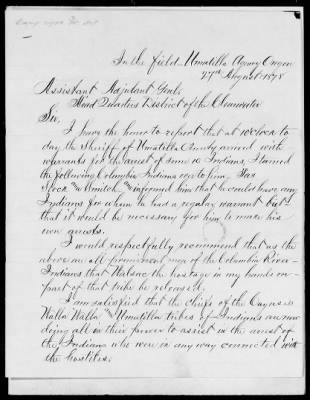 In the field Umatilla Agency Oregon
27th August 1878
Assistant Adjutant Genl.
Head Quarters District of the Clearwater
Sir,
I have the honor to report that at 10 o'clock to
day the Sheriff of Umatilla County armed with
warrants for the arrest of some 10 Indians. I turned
the following Columbia Indians over to him,
and informed him that he could have any
Indians for whom he had a regular warrant but
that it would be necessary for him to make his
own arrests.
I would respectfully recommend that as the
above are all prominent men of the Columbia River
Indians that the hostage in my hands on
part of that tribe be released.
I am satisfied that the Chiefs of the Cayuses
Walla Walla and Umatilla tribes of Indians are now
doing all in their power to assist in the arrest of
the Indians who were in any way connected with
the hostiles.